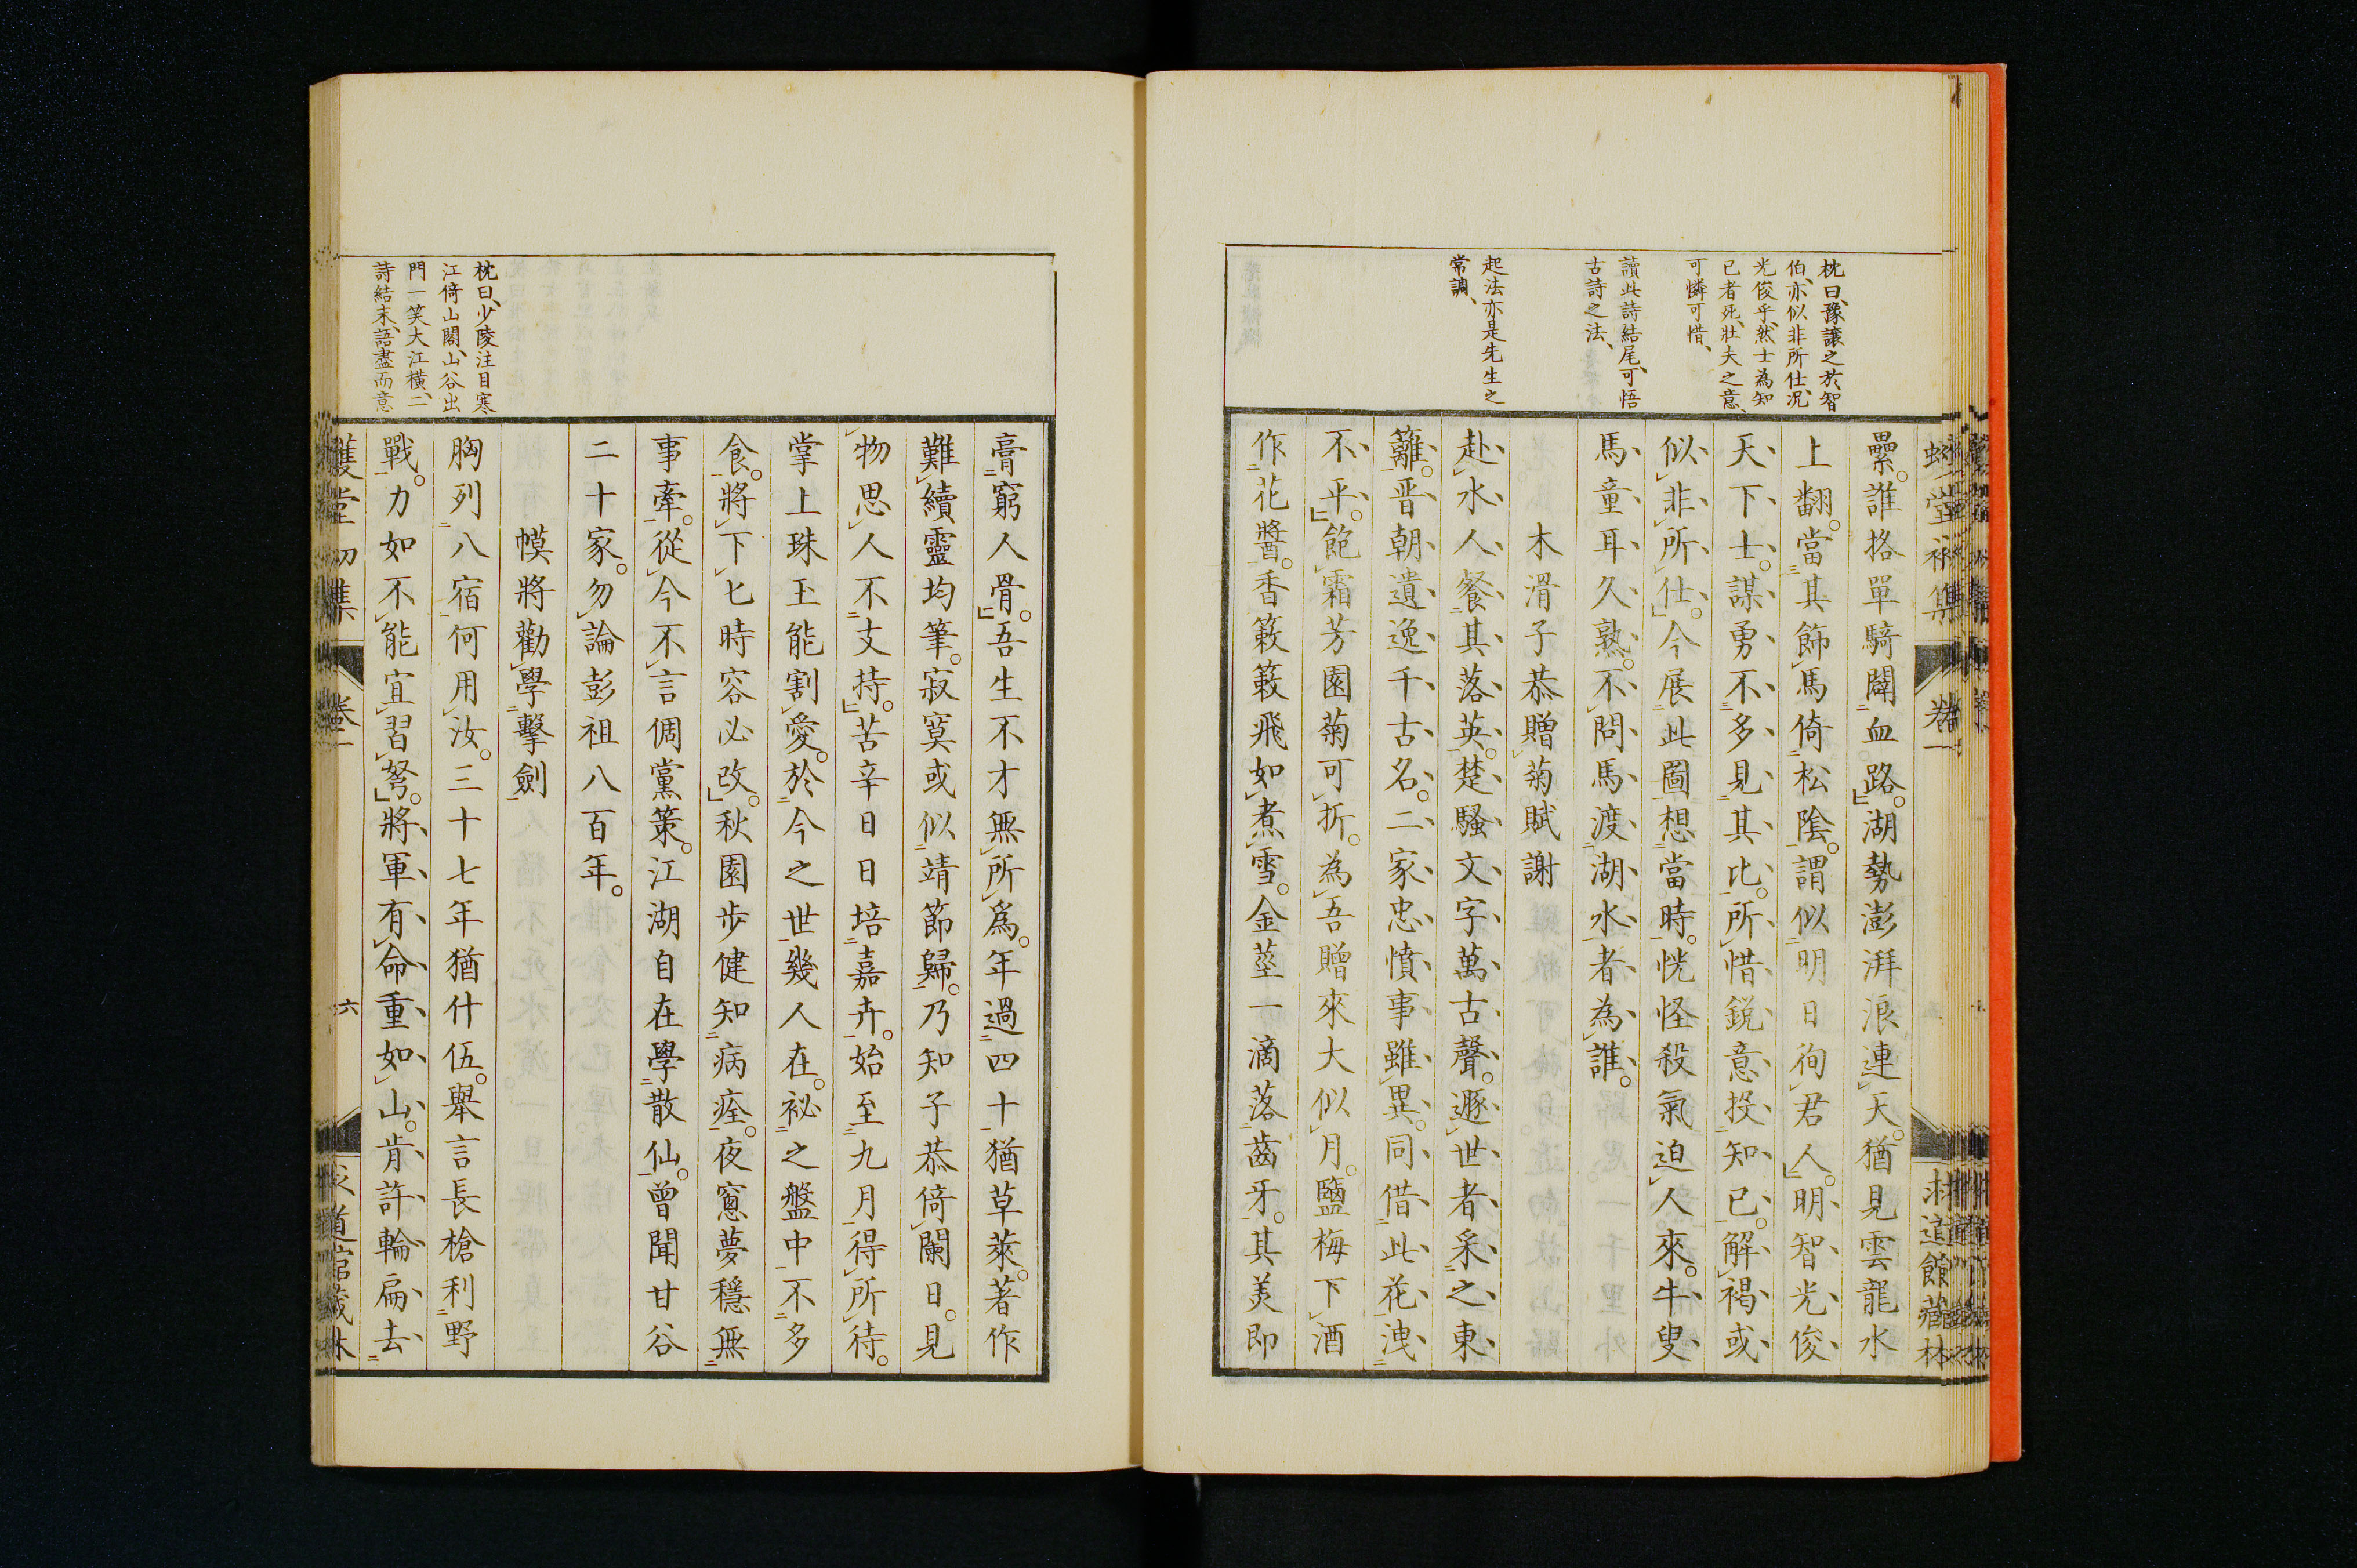 枕曰、豫讓之於智
伯、亦似非所仕、况
光俊乎、然士為知
已者死、壯夫之意、
可憐可惜、
讀此詩結尾、可悟
古詩之法、
起法亦是先生之
常調、
壘。誰挌單騎闢血路。湖勢澎湃浪連天。猶見雲龍水
上翻。當其飾馬倚松陰。謂似明日徇君人。明智光俊
天下士。謀勇不多見其比。所惜鋭意投知已。解褐或
似非所仕。今展此圖想當時。恍怪殺氣迫人來。牛叟
馬童耳久熟。不問馬渡湖水者為誰。
木滑子恭贈菊賦謝
赴水人餐其落英。楚騷文字萬古聲。遯世者采之東
籬。晋朝遺逸千古名。二家忠憤事雖異。同借此花洩
不平。飽霜芳園菊可折。為吾贈來大似月。鹽梅下酒
作花醬。香簌簌飛如煮雪。金莖一滴落齒牙。其美即
卷一
膏窮人骨。吾生不才無所爲。年過四十猶草萊。著作
難續靈均筆。寂寞或似靖節歸。乃知子恭倚闌日。見
物思人不支持。苦辛日日培嘉卉。始至九月得所待。
掌上珠玉能割愛。於今之世幾人在。袐之盤中不多
食。將下匕時容必改。秋園步健知病痊。夜窻夢穩無
事牽。從今不言倜黨策。江湖自在學散仙。曾聞甘谷
二十家。勿論彭祖八百年。
幙將勸學擊劍
胸列八宿何用汝。三十七年猶什伍。舉言長槍利野
戰。力如不能宜習弩。將軍有命重如山。肯許輪扁去
枕曰、少陵注目寒
江倚山閣、山谷出
門一笑大江横、二
詩結末、語盡而意
六